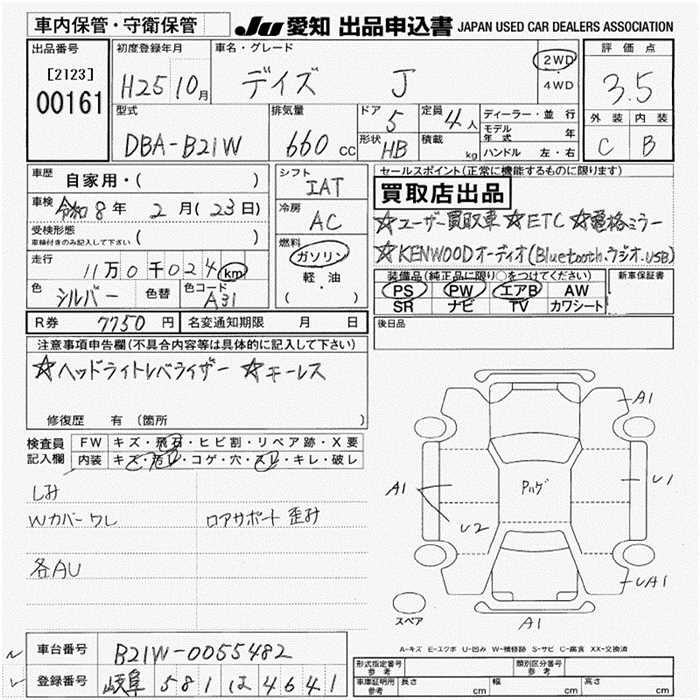 車内保管・守衛保管
JU 愛知 出品申込書 JAPAN USED CAR DEALERS ASSOCIATION
出品番号
[2123]
00161
初度登録年月
H25 10月
車名・グレード
デイズ J
2WD
4WD
評価点
3.5
外装 内装
C B
型式
DBA-B21W
排気量
660 cc
ドア 5
形状 HB
定員 4人
積載 kg
ディーラー・並行
モデル年式 年
ハンドル 左・右
車歴 自家用・( )
車検 令和8年 2月(23日)
受検形態
車検付きのみ記入して下さい ( )
走行 11万0千024km
色 シルバー 色替 色コード A31
シフト
IAT
冷房
AC
燃料
ガソリン
軽・油
( )
セールスポイント(正常に機能するものに限ります)
買取店出品
☆ユーザー買取車 ☆ETC ☆電格ミラー
☆KENWOODオーディオ(Bluetooth.ラジオ.USB)
装備品(純正品に限り○をつけてください)
PS PW エアB AW
SR ナビ TV カワシート
新車保証書
後日品
R券 7750円 名変通知期限 月 日
注意事項申告欄(不具合内容等は具体的に記入して下さい)
☆ヘッドライトレベライザー ☆キーレス
修復歴 有 (箇所 )
検査員記入欄
FW キズ・飛石・ヒビ割・リペア跡・X要
内装 キズ・汚レ・コゲ・穴・スレ・キレ・破レ
しみ
Wカバーワレ ロアサポート歪み
各AU
A1
A1
U2
Pハゲ
U1
UA1
A1
スペア
A-キズ E-エクボ U-凹み W-補修跡 S-サビ C-腐食 XX-交換済
車台番号 B21W-0055482
登録番号 岐阜 581 は 4641
形式指定番号 参考
類別区分番号 参考
車庫証明用 参考 長さ cm 幅 cm 高さ cm